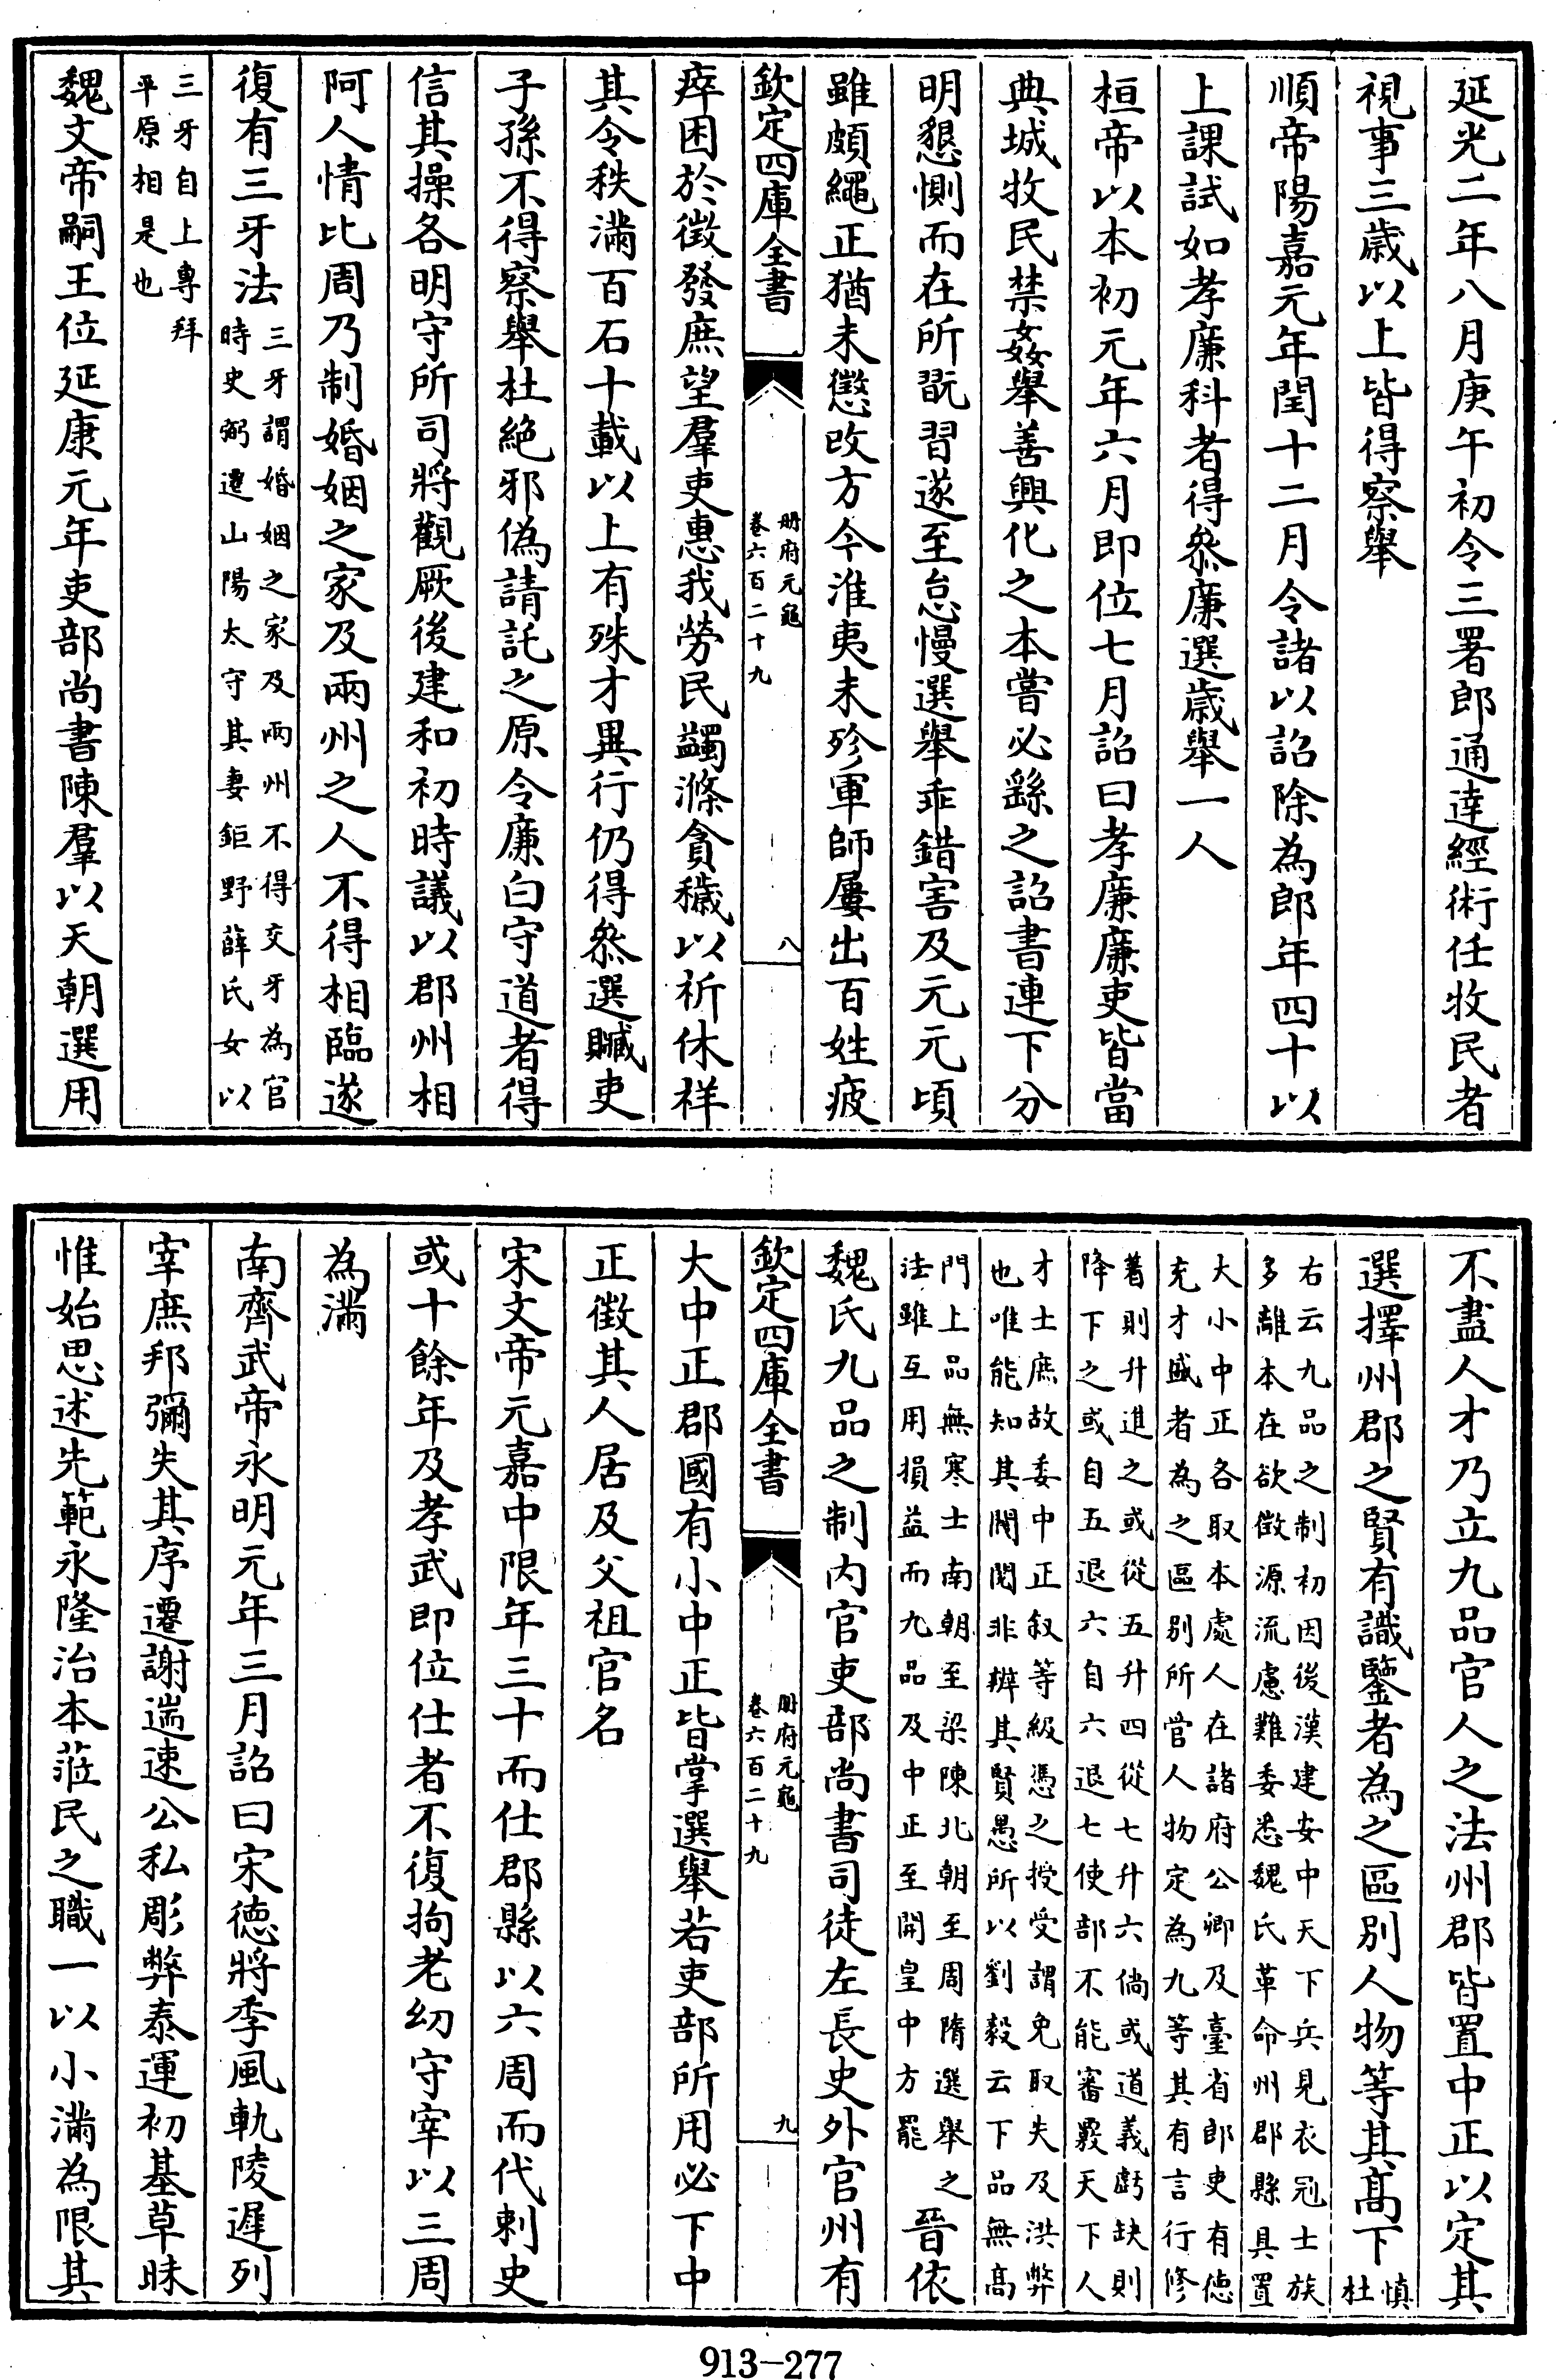 延光二年八月庚午初令三署郎通達經術任牧民者
視事三歲以上皆得察舉
順帝陽嘉元年閏十二月令諸以詔除為郎年四十以
上課試如孝廉科者得叅廉選歲舉一人
桓帝以本初元年六月即位七月詔曰孝廉廉吏皆當
典城牧民禁姦舉善興化之本嘗必繇之詔書連下分
明懇惻而在所翫習遂至怠慢選舉乖錯害及元元頃
雖頗繩正猶未懲改方今淮夷未殄軍師屢出百姓疲
欽定四庫全書
冊府元龜
卷六百二十九
八
瘁困於徵發庶望羣吏惠我勞民蠲滌貪穢以祈休祥
其令秩滿百石十載以上有殊才異行仍得叅選贓吏
子孫不得察舉杜絕邪偽請託之原令廉白守道者得
信其操各明守所司將觀厥後建和初時議以郡州相
阿人情比周乃制婚姻之家及兩州之人不得相臨遂
復有三牙法
三牙謂婚姻之家及兩州不得交牙為官
時史弼遷山陽太守其妻鉅野薛氏女以
三牙自上專拜
平原相是也
魏文帝嗣王位延康元年吏部尚書陳羣以天朝選用
不盡人才乃立九品官人之法州郡皆置中正以定其
選擇州郡之賢有識鑒者為之區別人物等其高下
慎
杜
右云九品之制初因後漢建安中天下兵見衣冠士族
多離本在欲徵源流慮難委悉魏氏革命州郡縣具置
大小中正各取本處人在諸府公卿及臺省郎吏有德
充才盛者為之區別所管人物定為九等其有言行修
著則升進之或從五升四從七升六倘或道義虧缺則
降下之或自五退六自六退七使部不能審覈天下人
才士庶故委中正叙等級憑之授受謂免取失及洪弊
也唯能知其閥閱非辨其賢愚所以劉毅云下品無高
門上品無寒士南朝至梁陳北朝至周隋選舉之
法雖互用損益而九品及中正至開皇中方罷
晉依
魏氏九品之制内官吏部尚書司徒左長史外官州有
欽定四庫全書
冊府元龜
卷六百二十九
九
大中正郡國有小中正皆掌選舉若吏部所用必下中
正徵其人居及父祖官名
宋文帝元嘉中限年三十而仕郡縣以六周而代刺史
或十餘年及孝武即位仕者不復拘老幼守宰以三周
為滿
南齊武帝永明元年三月詔曰宋德將季風軌陵遲列
宰庶邦彌失其序遷謝遄速公私彫弊泰運初基草昧
惟始思述先範永隆治本蒞民之職一以小滿為限其
913-277